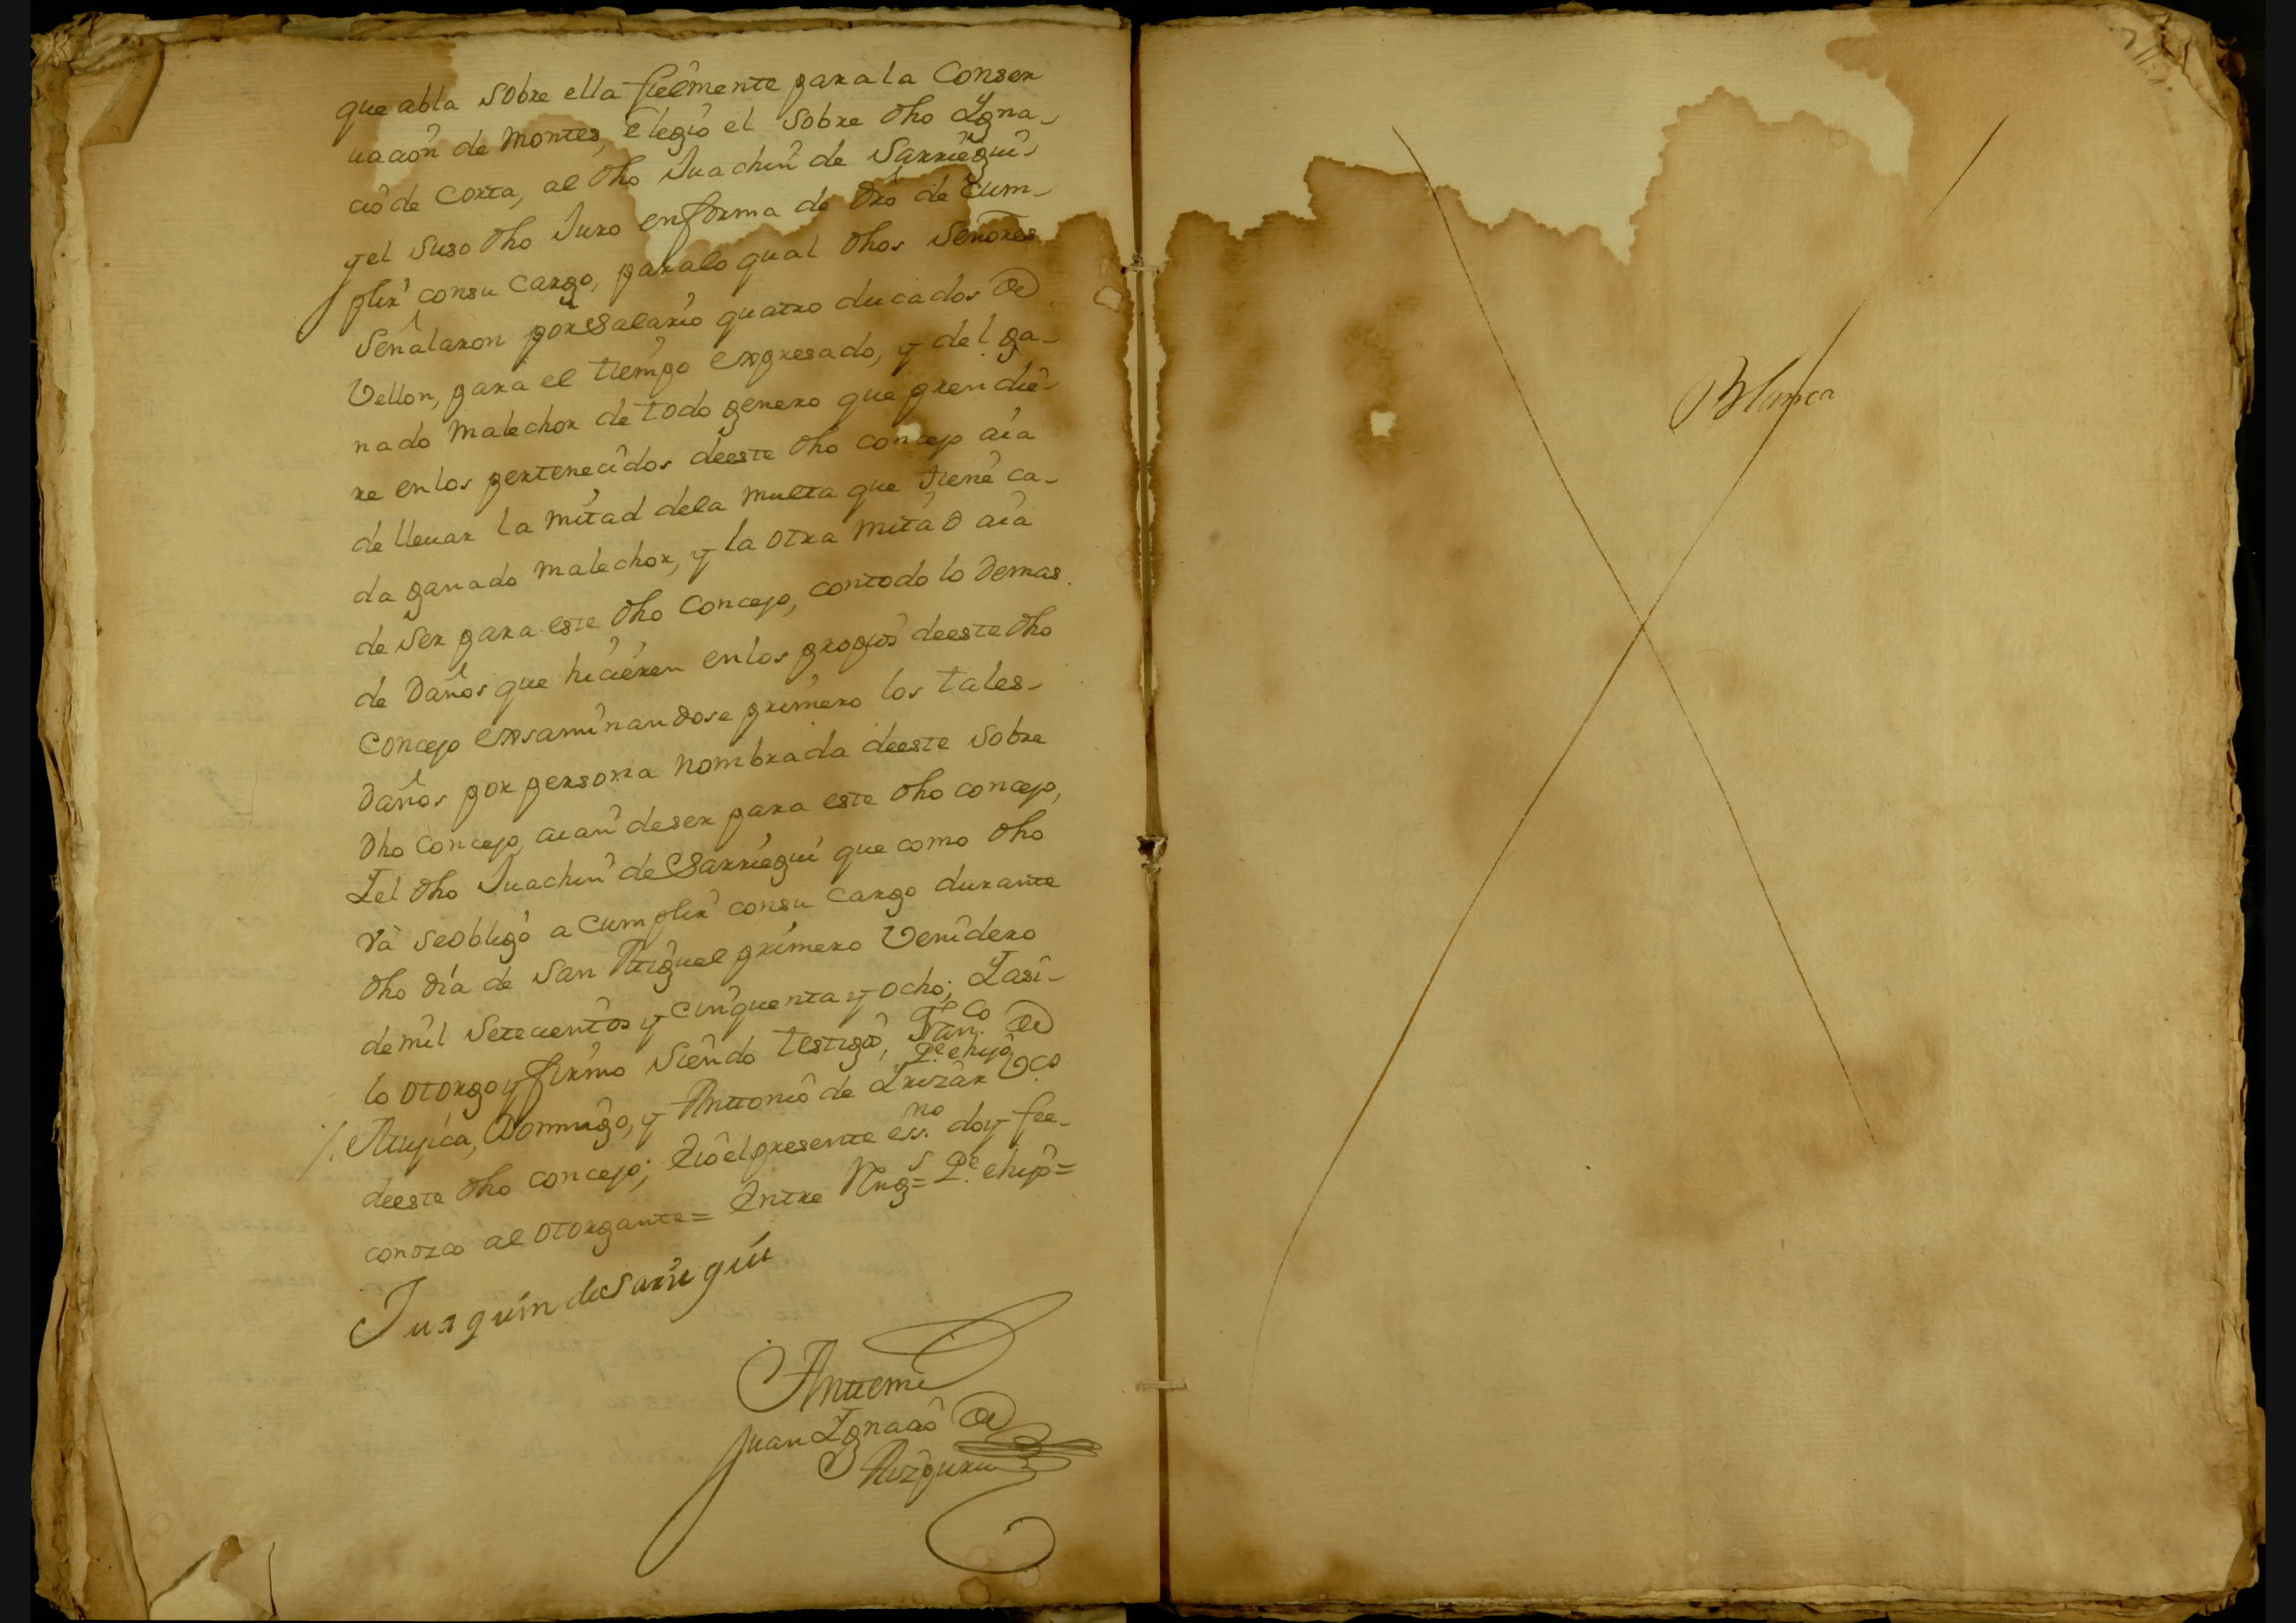 que abla sobre ella fielmente para la Conser
uación de Montes, elegió el sobre dho Igna-
cio de Corta, al dho Juachin de Sarriegui
y el suso dho Juro en forma de dro de Cum-
plir con su cargo, para lo qual dhos Señores
Señalaron por salario quatro ducados de
Vellon, para el tiempo expresado, y del ga-
nado malechor de todo genero que prendie-
re en los pertenecidos de este dho concejo aia
de lleuar la mitad de la multa que tiene ca-
da ganado malechor, y la otra mitad aia
de ser para este dho Concejo, con todo lo demas
de Daños que hicieren en los propios de este dho
Concejo exsaminandose primero los tales
Daños por persona nombrada de este sobre
dho Concejo, aian de ser para este dho concejo,
I el dho Juachin de Sarriegui que como dho
Vá se obligó a cumplir con su cargo durante
dho día de San Miguel primero Venidero
de mil Setecientos y cinquenta y ocho; I asi
lo otorgo y firmo siendo testigos, Franco de
Pe e hijo
Domingo, y Antonio de Irizar Vos
de este dho concejo; E io el presente essno doy fee
conozco al otorgante = Entre Rngs = Pe e hijo =
Juaquin de Sariegui
Antemi
Juan Ignacio de
Aizpuru
Blanca